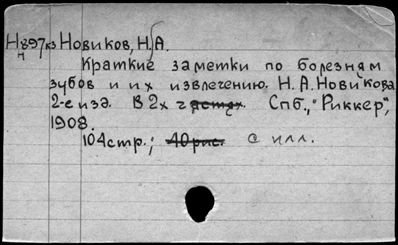 Н897кз Новиков, Н.А.
н
Краткие заметки по болезням
зубов и их извлечению. Н.А.Новикова
2-е изд. В 2х частях. Спб., "Риккер",
1908.
104стр.; 40рис. с илл.